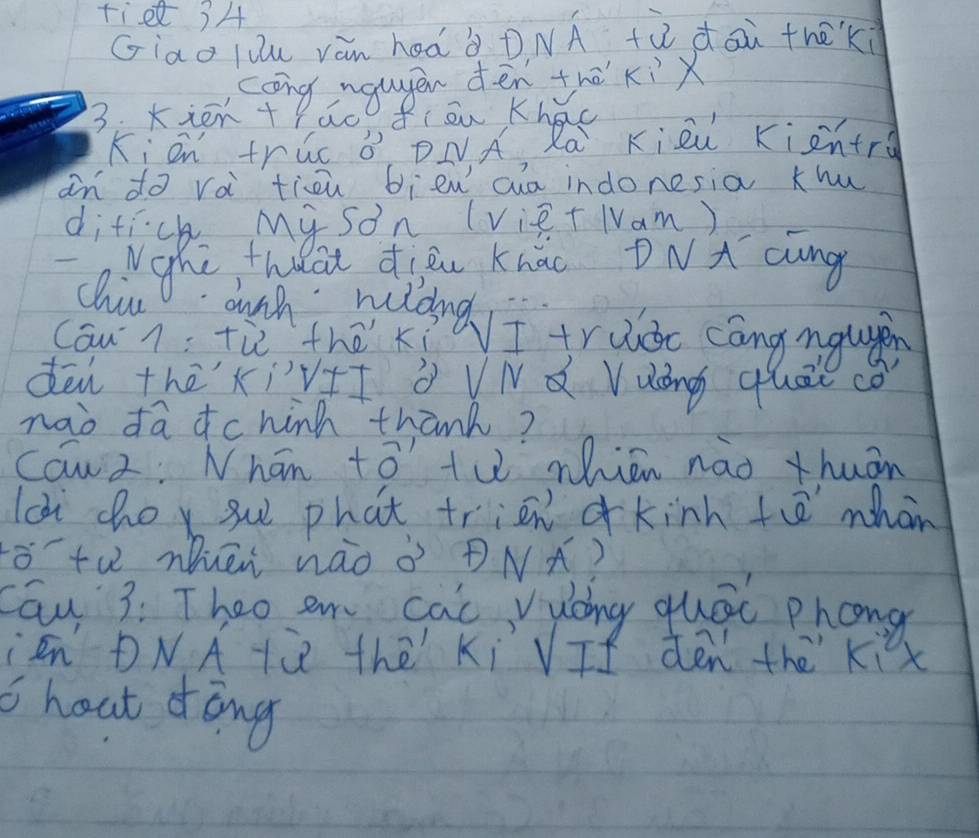 tiết 34
Giao lưu văn hoá ở ĐNÁ từ đầu thế kỉ
công nguyên đến thế kỉ X
3. Kiến trúc điêu khắc
Kiến trúc ở ĐNÁ là kiểu kiến trú
ấn độ và tiêu biểu của indonesia khu
di tích Mỹ Sơn (Việt Nam)
- Nghệ thuật điêu khắc ĐNÁ cũng
chiu ảnh hưởng ...
Câu 1: Từ thế kỉ VII trước công nguyên
đến thế kỉ VII ở VN Vương quốc cổ
nào đã đc hình thành?
Câu 2: Nhân tố tự nhiên nào thuận
lợi cho sự phát triển kinh tế nhân
tố tự nhiên nào ở ĐNÁ?
Câu 3: Theo em các vương quốc phong
iến ĐNÁ từ thế kỉ VII đến thế kỉ X
ó hoạt động